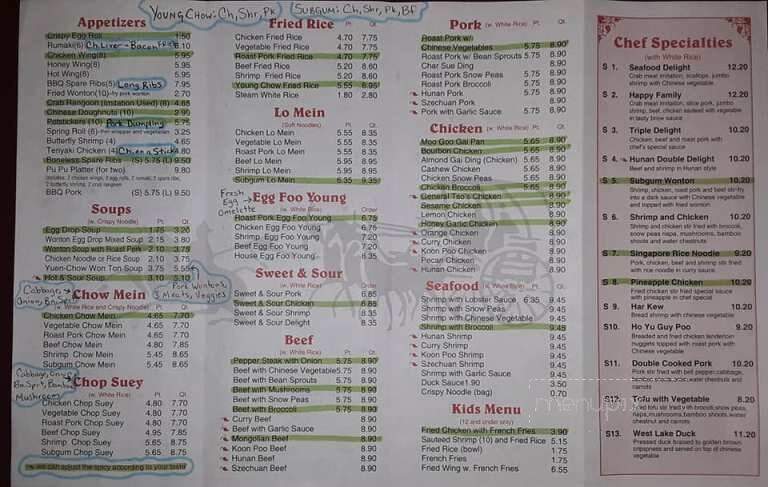 YOUNG CHOW: Ch, Shr, Pk
SUBGUM: Ch, Shr, Pk, Bf
Appetizers
Crispy Egg Roll 1.50
Rumaki(6) Ch. Liver + Bacon 8.10
Chicken Wing(8) 5.95
Honey Wing(8) 5.95
Hot Wing(8) 5.95
BBQ Spare Ribs(5) Long Ribs 7.95
Fried Wonton(10)-By pork wonton 2.70
Crab Rangoon (Imitation Used) (8) 4.65
Chinese Doughnuts (10) 2.90
Potstickers (10) Pork Dumpling 5.75
Spring Roll (6)-Thin wrapper and vegetarian 3.25
Butterfly Shrimp (4) 4.65
Teriyaki Chicken (4) Chicken Stick 4.80
Boneless Spare Ribs (S) 5.75 (L) 9.50
Pu Pu Platter (for two) 9.80
BBQ Pork (S) 5.75 (L) 9.50
Soups
(w. Crispy Noodle) Pt. Qt.
Egg Drop Soup 1.75 3.20
Wonton Egg Drop Mixed Soup 2.15 3.80
Wonton Soup with Roast Pork 2.10 3.75
Chicken Noodle or Rice Soup 2.10 3.75
Yuen-Chow Won Ton Soup 3.75 5.55
Hot & Sour Soup 5.10
Pork Wontons, 3 Meats, Veggies
Cabbage, Onion, Bn Sp
Chow Mein
(w. White Rice and Crispy Noodle) Pt. Qt.
Chicken Chow Mein 4.65 7.70
Vegetable Chow Mein 4.65 7.70
Roast Pork Chow Mein 4.65 7.70
Beef Chow Mein 4.80 7.85
Shrimp Chow Mein 5.45 8.65
Subgum Chow Mein 5.45 8.65
Chop Suey
(w. White Rice) Pt. Qt.
Chicken Chop Suey 4.80 7.70
Vegetable Chop Suey 4.80 7.70
Roast Pork Chop Suey 4.80 7.70
Beef Chop Suey 4.95 7.85
Shrimp Chop Suey 5.65 8.75
Subgum Chop Suey 5.65 8.75
we can adjust the spicy according to your taste
Fried Rice
Pt. Qt.
Chicken Fried Rice 4.70 7.75
Vegetable Fried Rice 4.70 7.75
Roast Pork Fried Rice 4.70 7.75
Beef Fried Rice 5.20 8.60
Shrimp Fried Rice 5.20 8.60
Young Chow Fried Rice 5.55 8.95
Steam White Rice 1.80 2.80
Lo Mein
(Soft Noodles) Pt. Qt.
Chicken Lo Mein 5.55 8.35
Vegetable Lo Mein 5.55 8.35
Roast Pork Lo Mein 5.55 8.35
Beef Lo Mein 5.95 8.95
Shrimp Lo Mein 5.95 8.95
Subgum Lo Mein 6.35 9.35
Fresh Egg Omelette
Egg Foo Young
(w. White Rice) Order
Roast Pork Egg Foo Young 6.75
Chicken Egg Foo Young 6.75
Shrimp, Egg Foo Young 7.20
Beef Egg Foo Young 7.20
House Egg Foo Young 8.35
Sweet & Sour
(w. White Rice) Order
Sweet & Sour Pork 6.85
Sweet & Sour Chicken 6.85
Sweet & Sour Shrimp 8.35
Sweet & Sour Delight 8.35
Beef
(w. White Rice) Pt. Qt.
Pepper Steak with Onion 5.75 8.90
Beef with Chinese Vegetable 5.75 8.90
Beef with Bean Sprouts 5.75 8.90
Beef with Mushrooms 5.75 8.90
Beef with Snow Peas 5.75 8.90
Beef with Broccoli 5.75 8.90
Curry Beef 8.90
Beef with Garlic Sauce 8.90
Mongolian Beef 8.90
Koon Poo Beef 8.90
Hunan Beef 8.90
Szechuan Beef 8.90
Pork (w. White Rice) Pt. Qt.
Roast Pork w/
Chinese Vegetables 5.75 8.90
Roast Pork w/ Bean Sprouts 5.75 8.90
Cher Sue Ding 5.75 8.90
Roast Pork Snow Peas 5.75 8.90
Roast Pork Broccoli 5.75 8.90
Hunan Pork 5.75 8.90
Szechuan Pork 8.90
Pork with Garlic Sauce 5.75 8.90
Chicken (w. White Rice) Pt. Qt.
Moo Goo Gai Pan 5.65 8.90
Bourbon Chicken 5.65 8.90
Almond Gai Ding (Chicken) 5.65 8.90
Cashew Chicken 5.65 8.90
Chicken Snow Peas 5.65 8.90
Chicken Broccoli 5.65 8.90
General Tso's Chicken 8.90
Sesame Chicken 8.90
Lemon Chicken 8.90
Honey Garlic Chicken 8.90
Orange Chicken 8.90
Curry Chicken 8.90
Koon Poo Chicken 8.90
Pecan Chicken 8.90
Hunan Chicken 8.90
Seafood (w. White Rice) Pt. Qt.
Shrimp with Lobster Sauce 6.35 9.45
Shrimp with Snow Peas 9.45
Shrimp with Chinese Vegetable 9.45
Shrimp with Broccoli 9.45
Hunan Shrimp 9.45
Curry Shrimp 9.45
Koon Poo Shrimp 9.45
Szechuan Shrimp 9.45
Shrimp with Garlic Sauce 9.45
Duck Sauce 1.90 3.50
Crispy Noodle (bag) 0.70
Kids Menu
(12 and under only)
Fried Chicken with French Fries 3.90
Sauteed Shrimp (10) and Fried Rice 5.15
Fried Rice (bowl) 1.75
French Fries 1.75
Fried Wing w. French Fries 6.55
Chef Specialties
(with White Rice)
S 1. Seafood Delight 12.20
Crab meat imitation, scallops, jumbo
shrimp with Chinese vegetable
S 2. Happy Family 12.20
Crab meat imitation, slice pork, jumbo
shrimp, beef, chicken sauteed with vegetable
in tasty brow sauce
S 3. Triple Delight 10.20
Chicken, beef and roast pork with
chef's special sauce
S 4. Hunan Double Delight 10.20
Beef and shrimp in Hunan style
S 5. Subgum Wonton 10.20
Shrimp, chicken, roast pork and beef stir-fry
into a dark sauce with Chinese vegetable
and topped with fried wonton
S 6. Shrimp and Chicken 10.20
Shrimp and chicken stir fried with broccoli,
snow peas napa, mushrooms, bamboo
shoots and water chestnuts
S 7. Singapore Rice Noodle 9.20
Pork, chicken, beef and shrimp stir fried with
rice noodle in curry sauce
S 8. Pineapple Chicken 10.20
Fried chicken stir fried special sauce
with pineapple in chef special
S 9. Har Kew 10.20
Bread shrimp with chinese vegetable
S10. Ho Yu Guy Poo 9.20
Breaded and fried chicken tenderloin
nuggets topped with roast pork with
Chinese vegetable
S11. Double Cooked Pork 10.20
Pork stir fried with bell pepper, cabbage,
water chestnuts and
carrots
S12. Tofu with Vegetable 8.20
tofu stir fried with broccoli, snow peas,
napa, mushrooms, bamboo shoots, water
chestnut and carrots
S13. West Lake Duck 11.20
Pressed duck braised to golden brown
crispness and served on top of chinese
vegetable
menupix